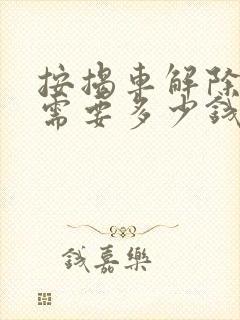 按揭車解除
需要多少錢
錢嘉樂